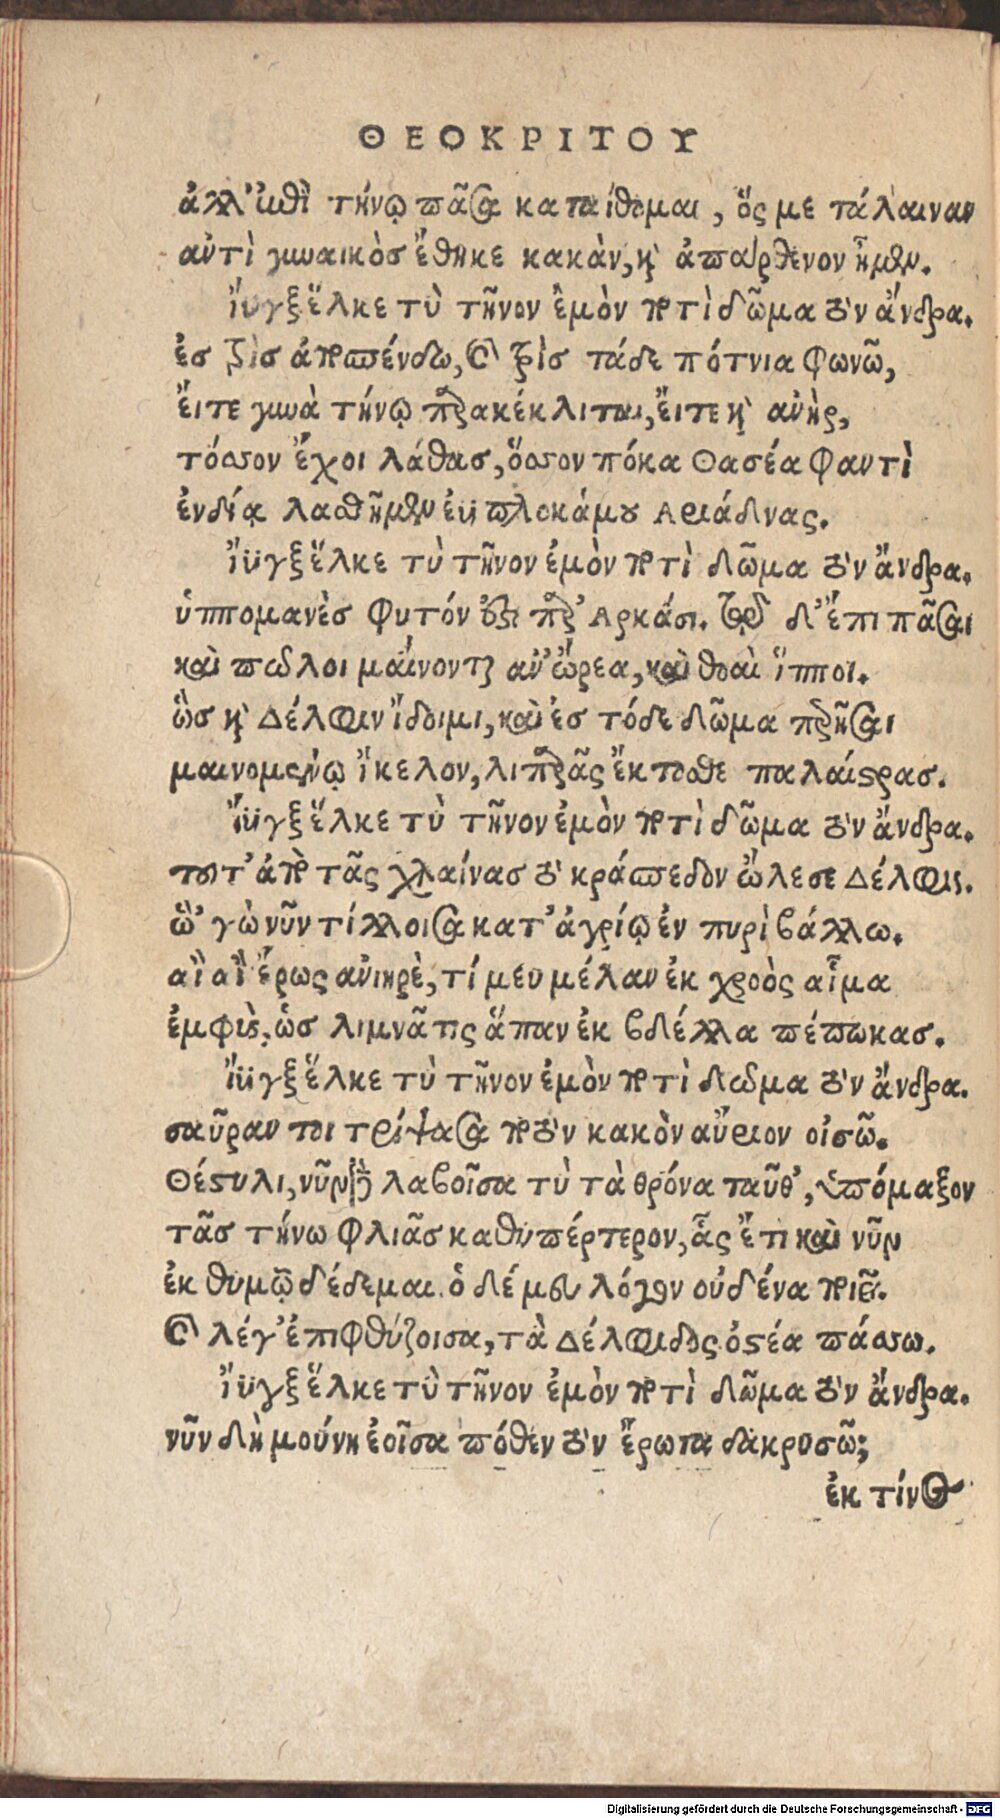 ΘΕΟΚΡΙΤΟΥ
ἀλλ' ἐπὶ τήνῳ πᾶσα καταίθομαι, ὅς με τάλαιναν
αὐτὶ γυναικὸσ ἔθηκε κακὰν, κὴ ἀπαρθενον ἦμεν.
ἴϋγξ ἕλκε τὺ τῆνον ἐμὸν ποτὶ δῶμα τὸν ἄνδρα.
ἐσ τρὶσ ἀποσπένδω, καὶ τρὶσ τάδε πότνια φωνῶ,
ἔιτε γυνὰ τήνῳ παρακέκλιται, ἔιτε κὴ ἀνὴρ,
τόσσον ἔχοι λάθασ, ὅσσον πόκα Θασέα φαντὶ
ἐνδίᾳ λασθῆμεν ἐϋπλοκάμου Αριάδνας.
ἴϋγξ ἕλκε τὺ τῆνον ἐμὸν ποτὶ δῶμα τὸν ἄνδρα.
ὑππομανὲσ φυτόν ὅστι παρ' Αρκάσι. τῷ δ' ἔπι πᾶσαι
καὶ πωλοι μαίνονται ἀν' ὤρεα, καὶ θοαὶ ἵπποι.
ὣσ κὴ Δέλφιν ἴδοιμι, καὶ ἐσ τόδε δῶμα περῆσαι
μαινομένῳ ἴκελον, λιπαρᾶς ἔκτοσθε παλαίστρασ.
ἴϋγξ ἕλκε τὺ τῆνον ἐμὸν ποτὶ δῶμα τὸν ἄνδρα.
τουτ' ἀπὸ τᾶς χλαίνασ τὸ κράσπεδον ὤλεσε Δέλφις.
ὣ' γὼ νῦν τίλλοισα κατ' ἀγρίῳ ἐν πυρὶ βάλλω.
αἲ αἲ ἔρως ἀνιηρὲ, τί μευ μέλαν ἐκ χροὸς αἷμα
ἐμφὺς, ὡσ λιμνᾶτις ἅπαν ἐκ βδέλλα πέπωκασ.
ἴϋγξ ἕλκε τὺ τῆνον ἐμὸν ποτὶ δωμα τὸν ἄνδρα.
σαῦραν τοι τρίψασα ποτὸν κακὸν αὔριον οἰσῶ.
Θέστυλι, νῦν δὲ λαβοῖσα τὺ τὰ θρόνα ταῦθ', ὑπόμαξον
τᾶσ τήνω φλιᾶσ καθυπέρτερον, ἇς ἔτι καὶ νῦν
ἐκ θυμῷ δέδεμαι. ὁ δέ μευ λόγον οὐδένα ποιεῖ.
καὶ λέγ' ἐπιφθύζοισα, τὰ Δέλφιδος ὀστέα πάσσω.
ἴϋγξ ἕλκε τὺ τῆνον ἐμὸν ποτὶ δῶμα τὸν ἄνδρα.
νῦν δὴ μούνη ἐοῖσα πόθεν τὸν ἔρωτα δακρυσῶ;
ἐκ τίνος
Digitalisierung gefördert durch die Deutsche Forschungsgemeinschaft - DFG